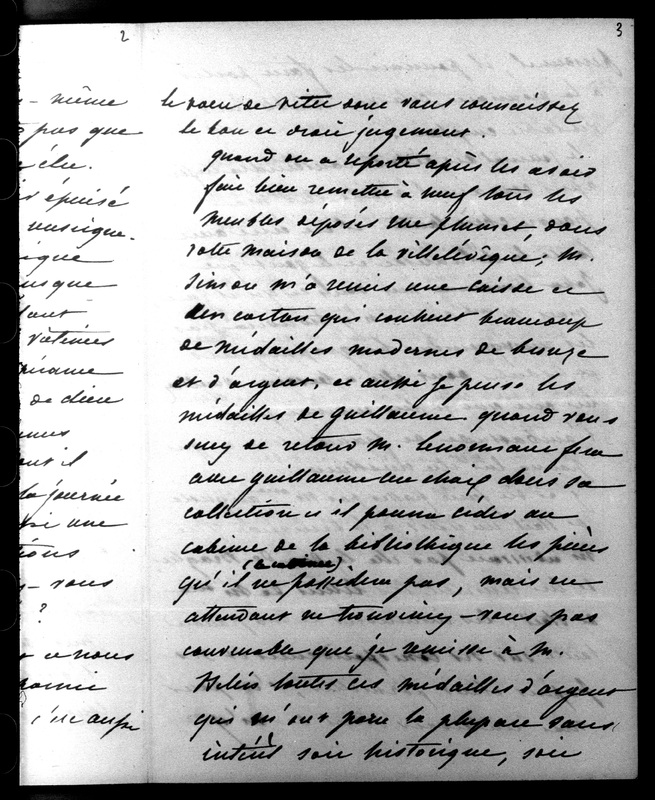 2
3
- même
pas que
élu.
épuisé
musique.
ique
usque
de dieu
la journée
une
- vous
?
nous
aussi
le voeu de rester dont vous connaissez
le bon et droit jugement.
quand on a reporté après les avoir
fait bien remettre à neuf tous les
meubles déposés rue plumet, dans
votre maison de la villelévêque, M.
Simon m'a remis une caisse et
un carton qui contient beaucoup
de médailles modernes de bronze
et d'argent, et aussi je pense les
médailles de guillaume quand vous
serez de retour M. Lenormant fera
avec guillaume un choix dans sa
collection et il pourra céder au
cabinet de la bibliothèque les pièces
(le cabinet)
qu'il ne possèdera pas, mais en
attendant ne trouviez-vous pas
convenable que je remisse à M.
toutes ces médailles d'argent
qui m'ont paru la plupart sans
intérêt soit historique, soit